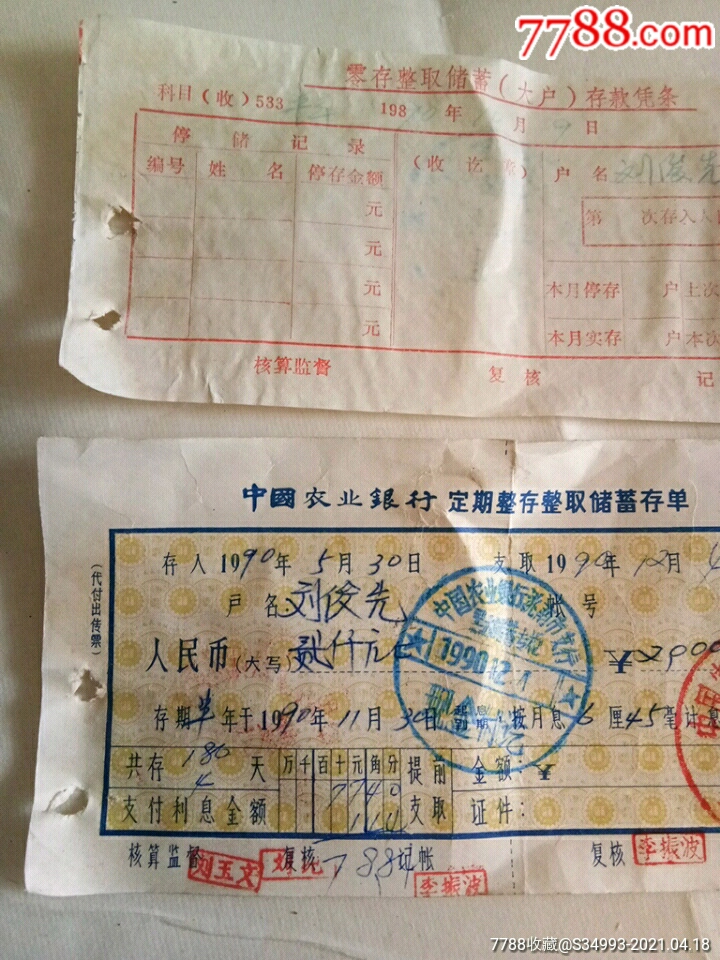 7788.com
零存整取储蓄(大户)存款凭条
科目(收)533
198 年 月 日
停 储 记 录
编号 姓 名 停存金额
元
元
元
元
(收 讫
户 名 刘俊先
第 次存入人
本月停存 户 上次
本月实存 户 本次
核算监督 复 核 记
中國农业銀行 定期整存整取储蓄存单
(代付出传票)
存入1990年5月30日 支取1990年12月4
户 名 刘俊先 帐 号
人民币(大写) 贰仟元
存期半年于1990年11月30日 按月息6厘45毫计
中国农业银行
1990.12.4
现金
共存 180 天 万千百十元角分 提前 金额:
4
7740
支付利息金额 支取 证件:
114
核算监督 复核 记帐 复核
刘玉文
788
李振波
李振波
7788收藏@S34993-2021.04.18